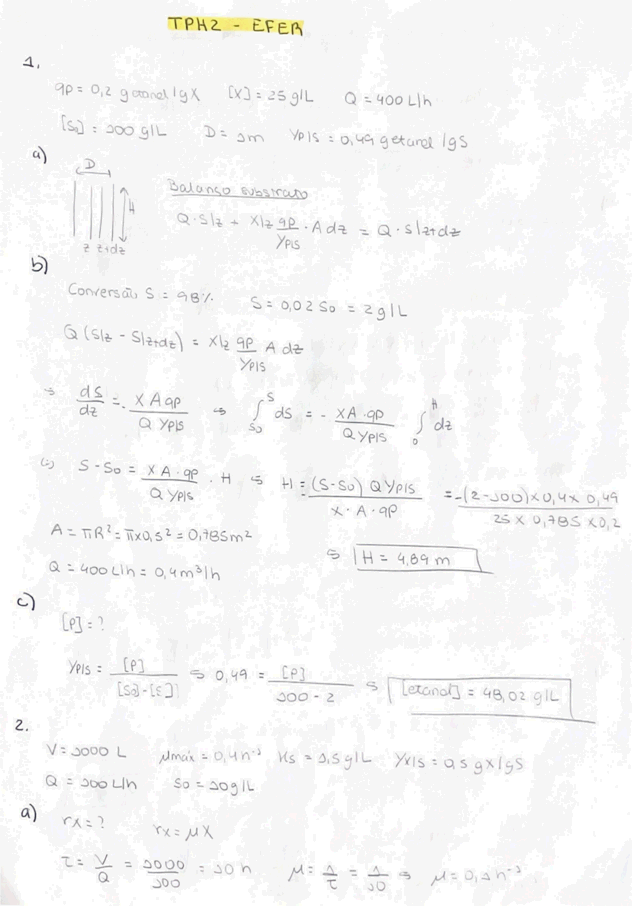 TPH2 - EFER
1.
qp = 0,2 g etanol / gX [X] = 25 g/L Q = 400 L/h
[S0] = 100 g/L D = 1m YP/S = 0,49 g etanol / gS
a)
D
H
z z+dz
Balanço substrato
Q · S|z + X|z qp/YP/S · A dz = Q · S|z+dz
b)
Conversão S = 98% S = 0,02 S0 = 2 g/L
Q (S|z - S|z+dz) = X|z qp/YP/S A dz
⇒ dS/dz = - X A qp / Q YP/S ⇒ ∫ S0 S dS = - XA · qp / Q YP/S ∫ 0 H dz
(=) S - S0 = X A · qp / Q YP/S · H ⇔ H = (S - S0) Q YP/S / X · A · qp = -(2 - 100) x 0,4 x 0,49 / 25 x 0,785 x 0,2
A = πR² = π x 0,5² = 0,785 m²
⇔ H = 4,89 m
Q = 400 L/h = 0,4 m³/h
c)
[P] = ?
YP/S = [P] / [S0] - [S] ⇔ 0,49 = [P] / 100 - 2 ⇔ [etanol] = 48,02 g/L
2.
V = 1000 L μmáx = 0,4 h⁻¹ Ks = 1,5 g/L YX/S = 0,5 gX/gS
Q = 100 L/h S0 = 10 g/L
a)
rx = ? rx = μX
τ = V/Q = 1000/100 = 10 h μ = 1/τ = 1/10 ⇒ μ = 0,1 h⁻¹